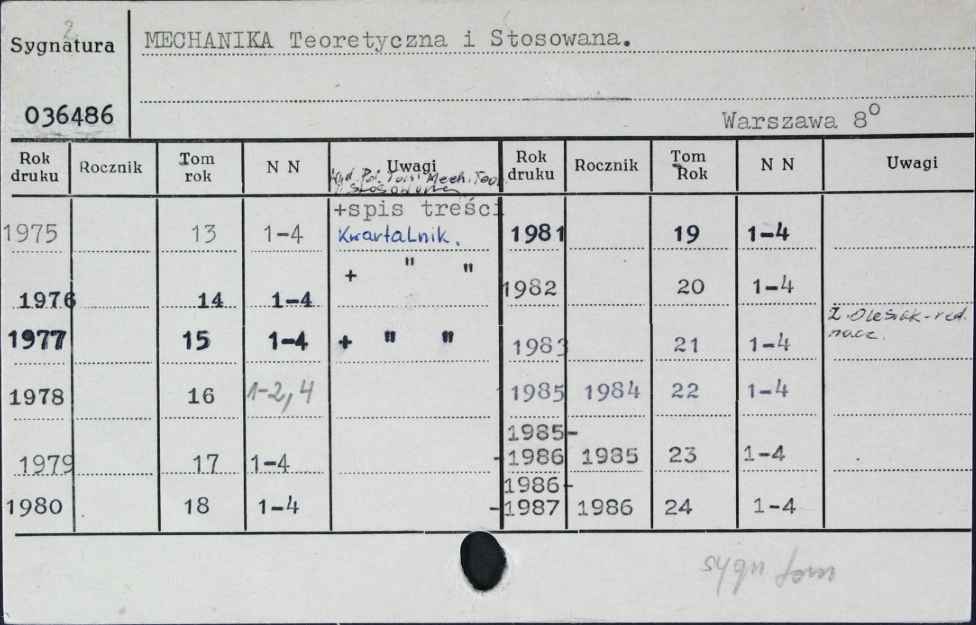 2
Sygnatura
MECHANIKA Teoretyczna i Stosowana.
036486
Warszawa 8°
Rok druku Rocznik Tom rok N N Uwagi Rok druku Rocznik Tom Rok N N Uwagi
Mech. Teor.
i Stosowana
+spis treści
1975 13 1-4 Kwartalnik. 1981 19 1-4
1976 14 1-4 + " " 1982 20 1-4
1977 15 1-4 + " " 1983 21 1-4 Z. Olesiak-red. nacz.
1978 16 1-2,4 1985 1984 22 1-4
1979 17 1-4 1985-
-1986 1985 23 1-4
1980 18 1-4 1986-
-1987 1986 24 1-4
sygn